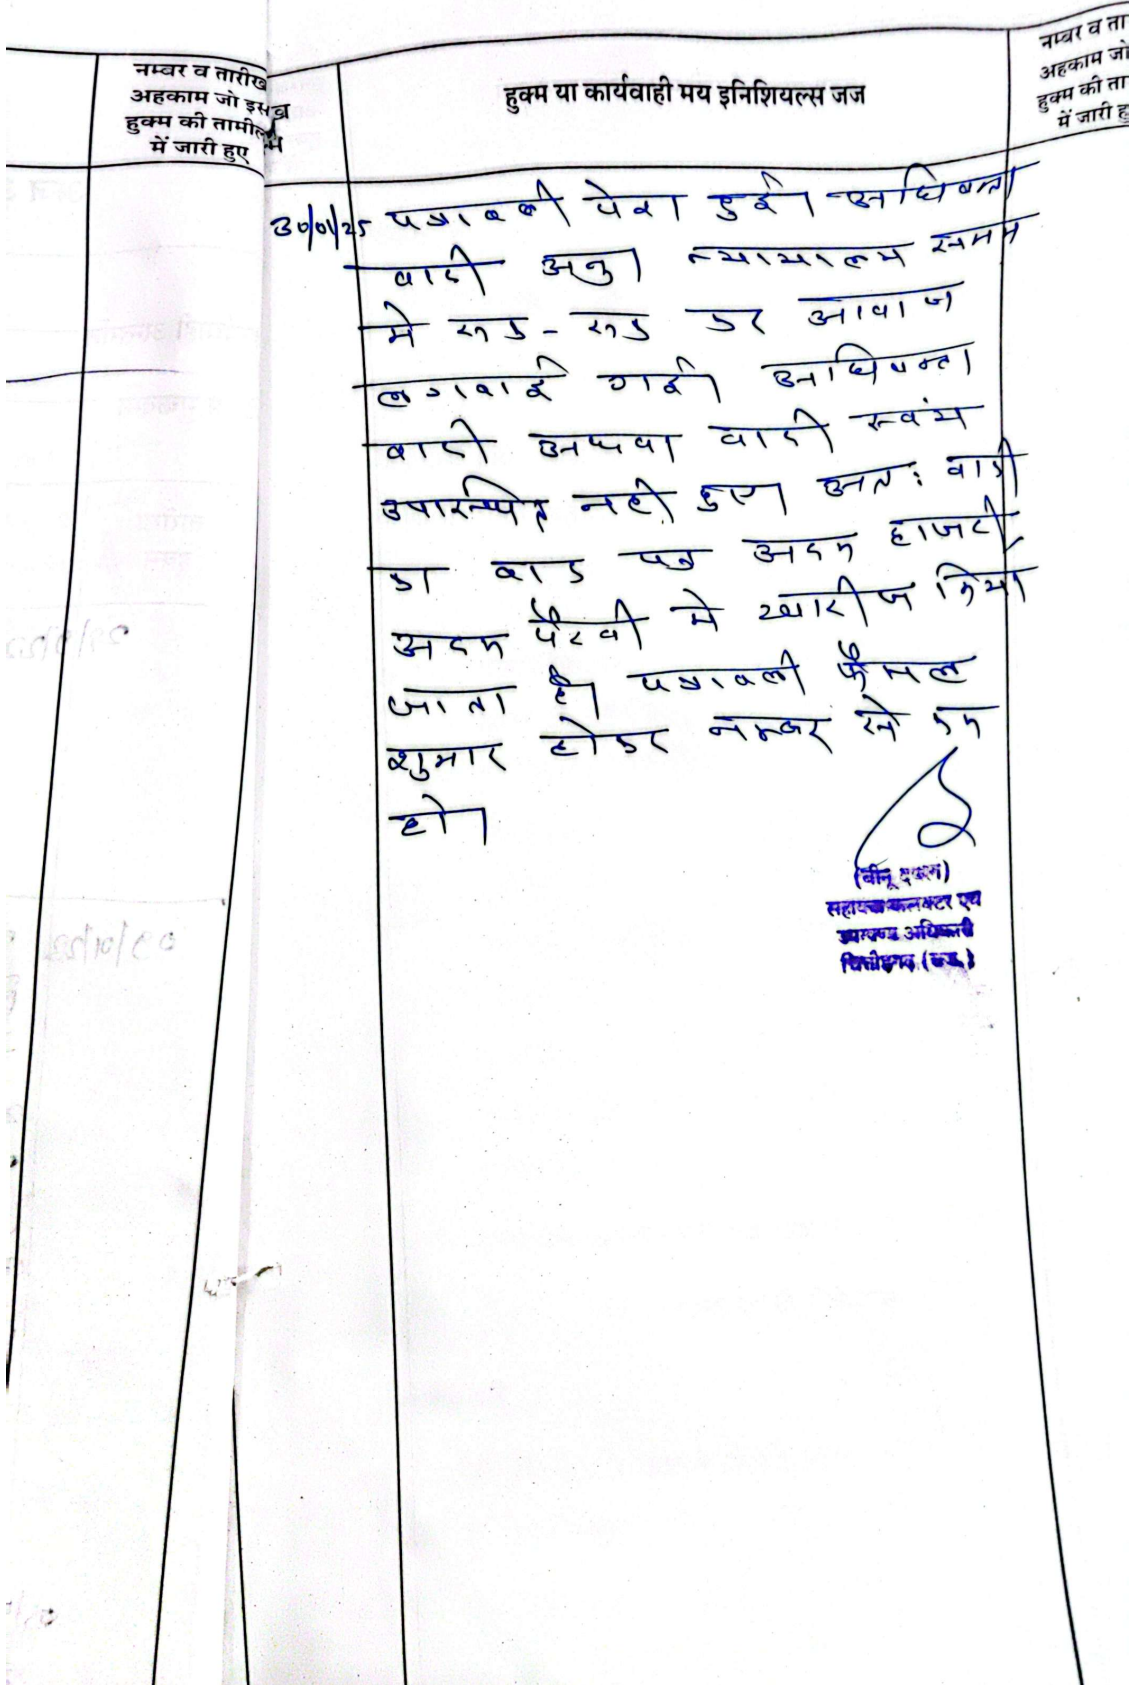 नम्बर व तारीख
अहकाम जो इस
हुक्म की तामील
में जारी हुए
हुक्म या कार्यवाही मय इनिशियल्स जज
नम्बर व ता
अहकाम जो
हुक्म की ता
में जारी हु
30/01/25 पत्रावली पेश हुई। अधिवक्ता
वादी अनु। न्यायालय समय
मे रूक - रूक कर आवाज
लगवाई गई। अधिवक्ता
वादी अथवा वादी स्वंय
उपस्थित नही हुए। अतः वादी
का वाद पत्र अदम हाजरी,
अदम पैरवी मे खारीज किया
जाता है। पत्रावली फैसल
शुमार होकर नम्बर से कम
हो।
सहायक कलक्टर एवं
उपखण्ड अधिकारी
चित्तौड़गढ़ (राज.)